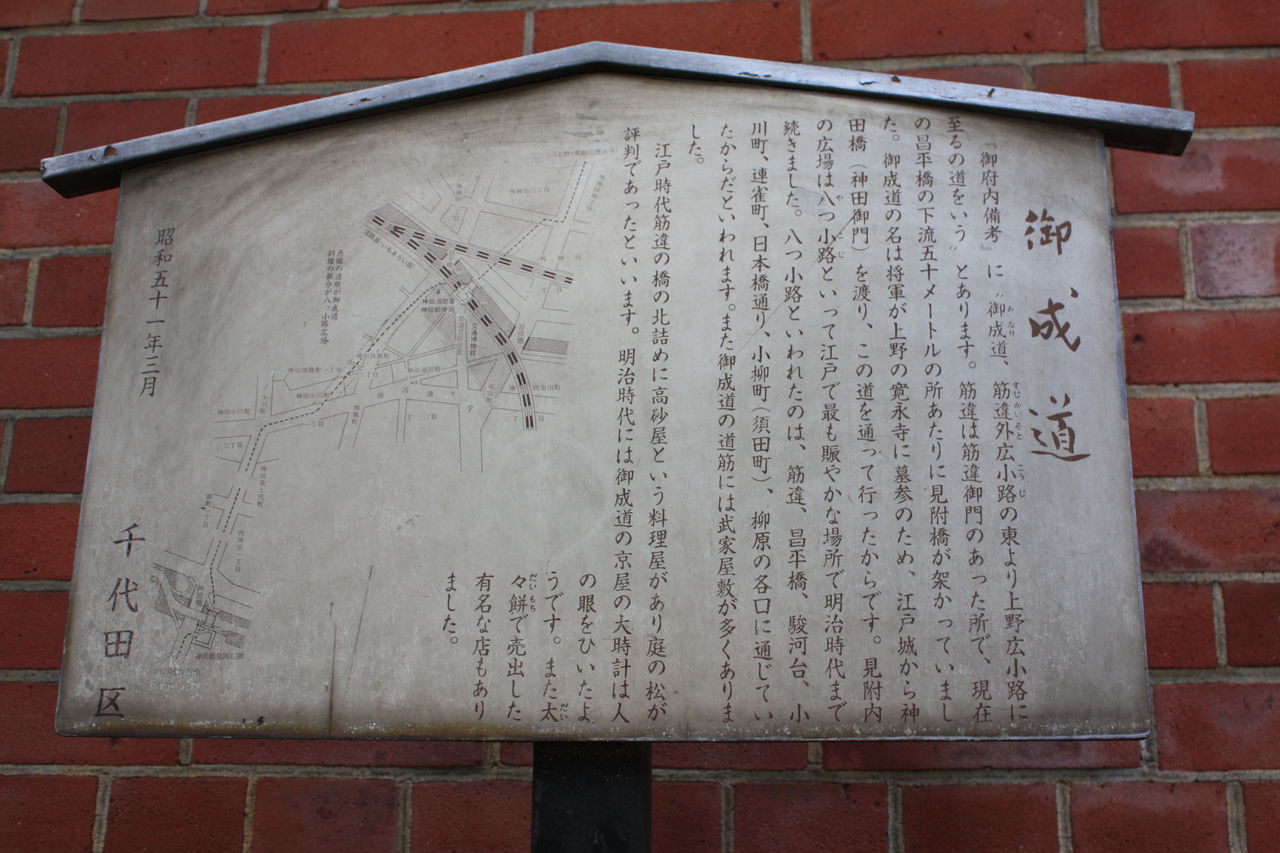 御成道
『御府内備考』に〝御成道、筋違外広小路の東より上野広小路に
至るの道をいう〟とあります。筋違は筋違御門のあった所で、現在
の昌平橋の下流五十メートルの所あたりに見附橋が架かっていまし
た。御成道の名は将軍が上野の寛永寺に墓参のため、江戸城から神
田橋（神田御門）を渡り、この道を通って行ったからです。見附内
の広場は八つ小路といって江戸で最も賑やかな場所で明治時代まで
続きました。八つ小路といわれたのは、筋違、昌平橋、駿河台、小
川町、連雀町、日本橋通り、小柳町（須田町）、柳原の各口に通じてい
たからだといわれます。また御成道の道筋には武家屋敷が多くありま
した。
江戸時代筋違の橋の北詰めに高砂屋という料理屋があり庭の松が
評判であったといいます。明治時代には御成道の京屋の大時計は人
の眼をひいたよ
うです。また太
々餅で売出した
有名な店もあり
ました。
点線の道順が御成道
斜線の部分が八ッ小路広場
交通博物館
万世橋
昭和五十一年三月
千代田区